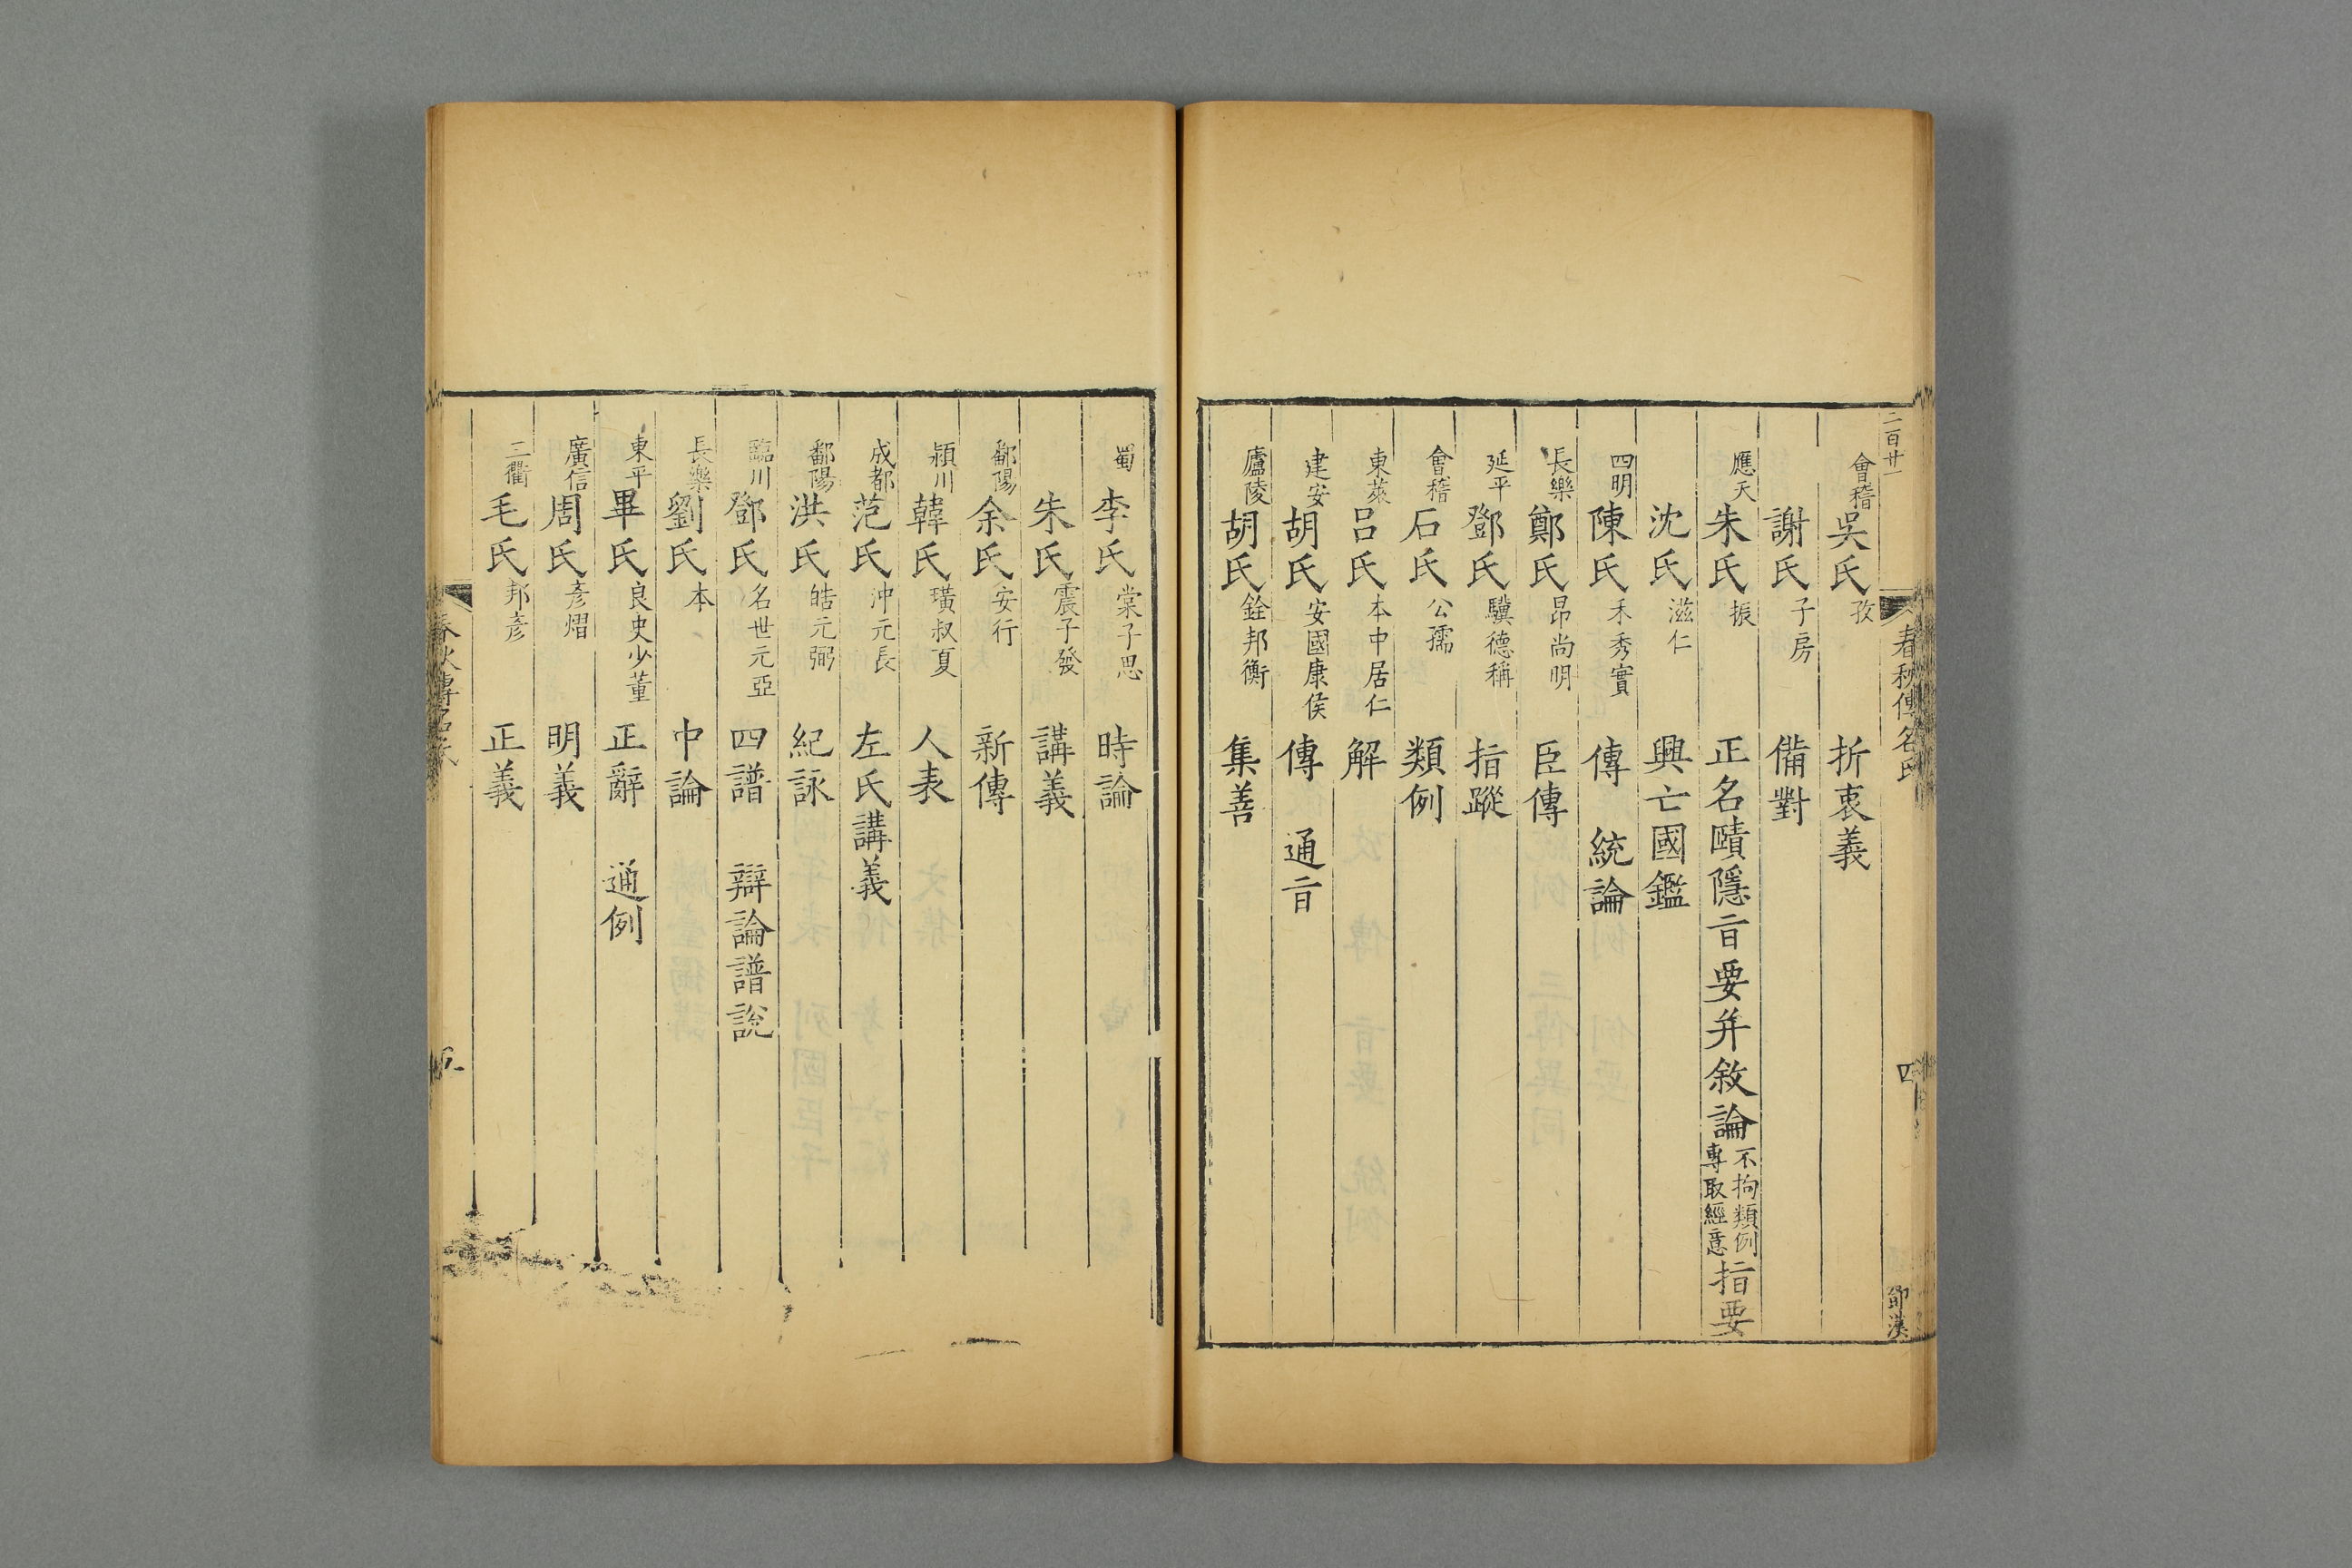 二百廿一
春秋傳名氏
四
會稽吳氏孜 折衷義
謝氏子房 備對
應天朱氏振 正名賾隱㫖要并敘論不拘類例專取經意指要
沈氏滋仁 興亡國鑑
四明陳氏禾秀實 傳 統論
長樂鄭氏昂尚明 臣傳
延平鄧氏驥德稱 指蹤
會稽石氏公孺 類例
東萊呂氏本中居仁 解
建安胡氏安國康侯 傳 通㫖
廬陵胡氏銓邦衡 集善
蜀李氏棠子思 時論
朱氏震子發 講義
鄱陽余氏安行 新傳
潁川韓氏璜叔夏 人表
成都范氏沖元長 左氏講義
鄱陽洪氏皓元弼 紀詠
臨川鄧氏名世元亞 四譜 辯論譜說
長樂劉氏本 中論
東平畢氏良史少董 正辭 通例
廣信周氏彥熠 明義
三衢毛氏邦彥 正義
春秋傳名氏
五